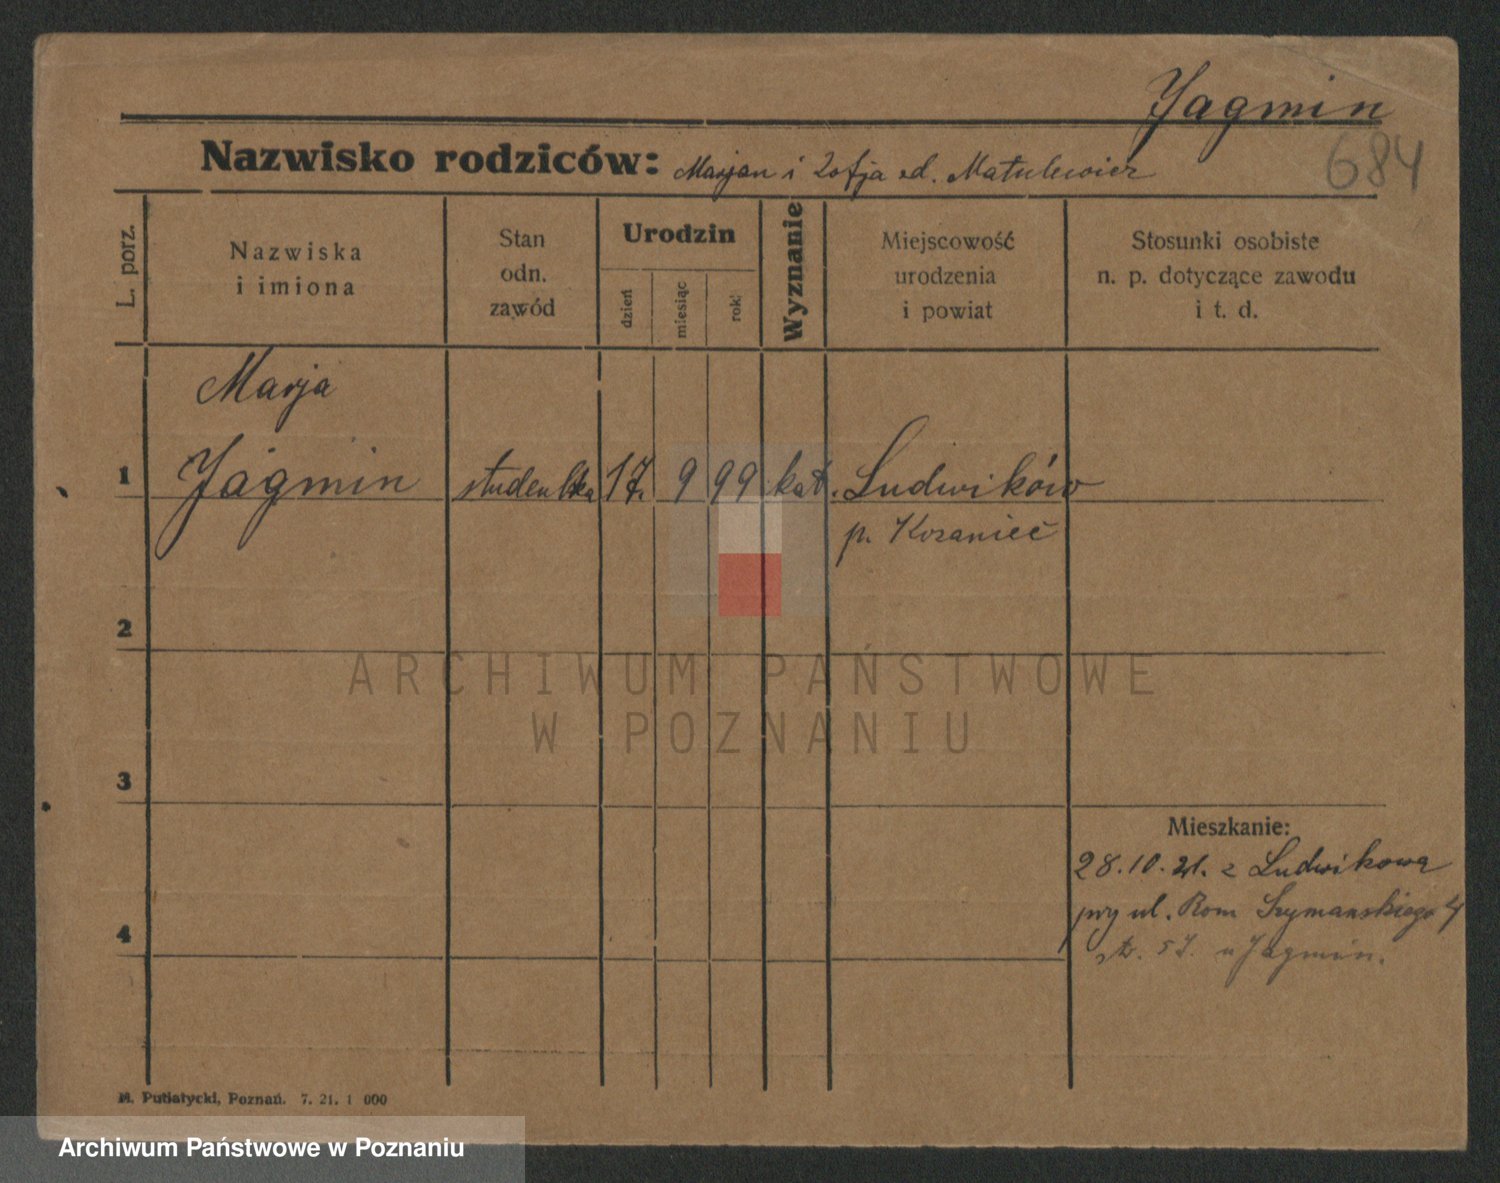 Jagmin
684
Nazwisko rodziców: Marjan i Zofja
L. porz.
Nazwiska
i imiona
Stan
odn.
zawód
Urodzin
dzień
miesiąc
rok
Wyznanie
Miejscowość
urodzenia
i powiat
Stosunki osobiste
n. p. dotyczące zawodu
i t. d.
Marja
1 Jagmin studentka 17. 9 99 kat. Ludwików
p.
2
3
4
Mieszkanie:
28.10.21. z Ludwikowa
przy ul. Rom Szymańskiego 4
u Jagmin.
M. Putiatycki, Poznań. 7. 21. 1 000
ARCHIWUM PAŃSTWOWE
W POZNANIU
Archiwum Państwowe w Poznaniu